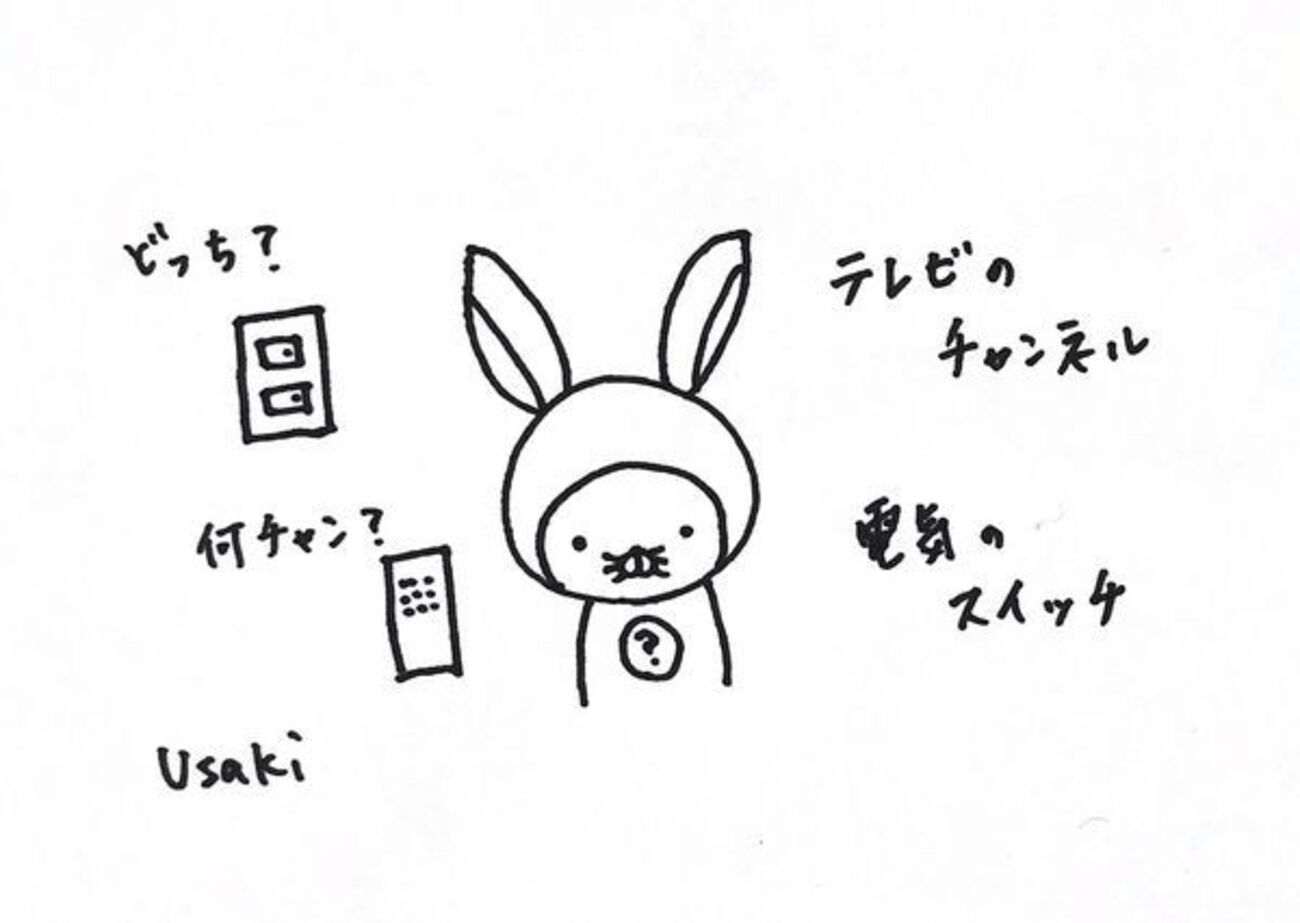 どっち?
何チャン?
?
Usaki
テレビの
チャンネル
電気の
スイッチ